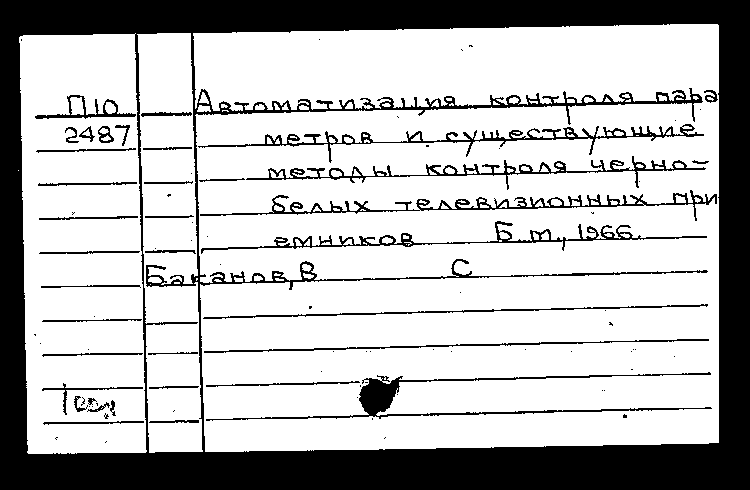 П10 Автоматизация контроля пара
2487 метров и существующие
методы контроля черно-
белых телевизионных при
емников Б.т., 1966.
Баканов, В С